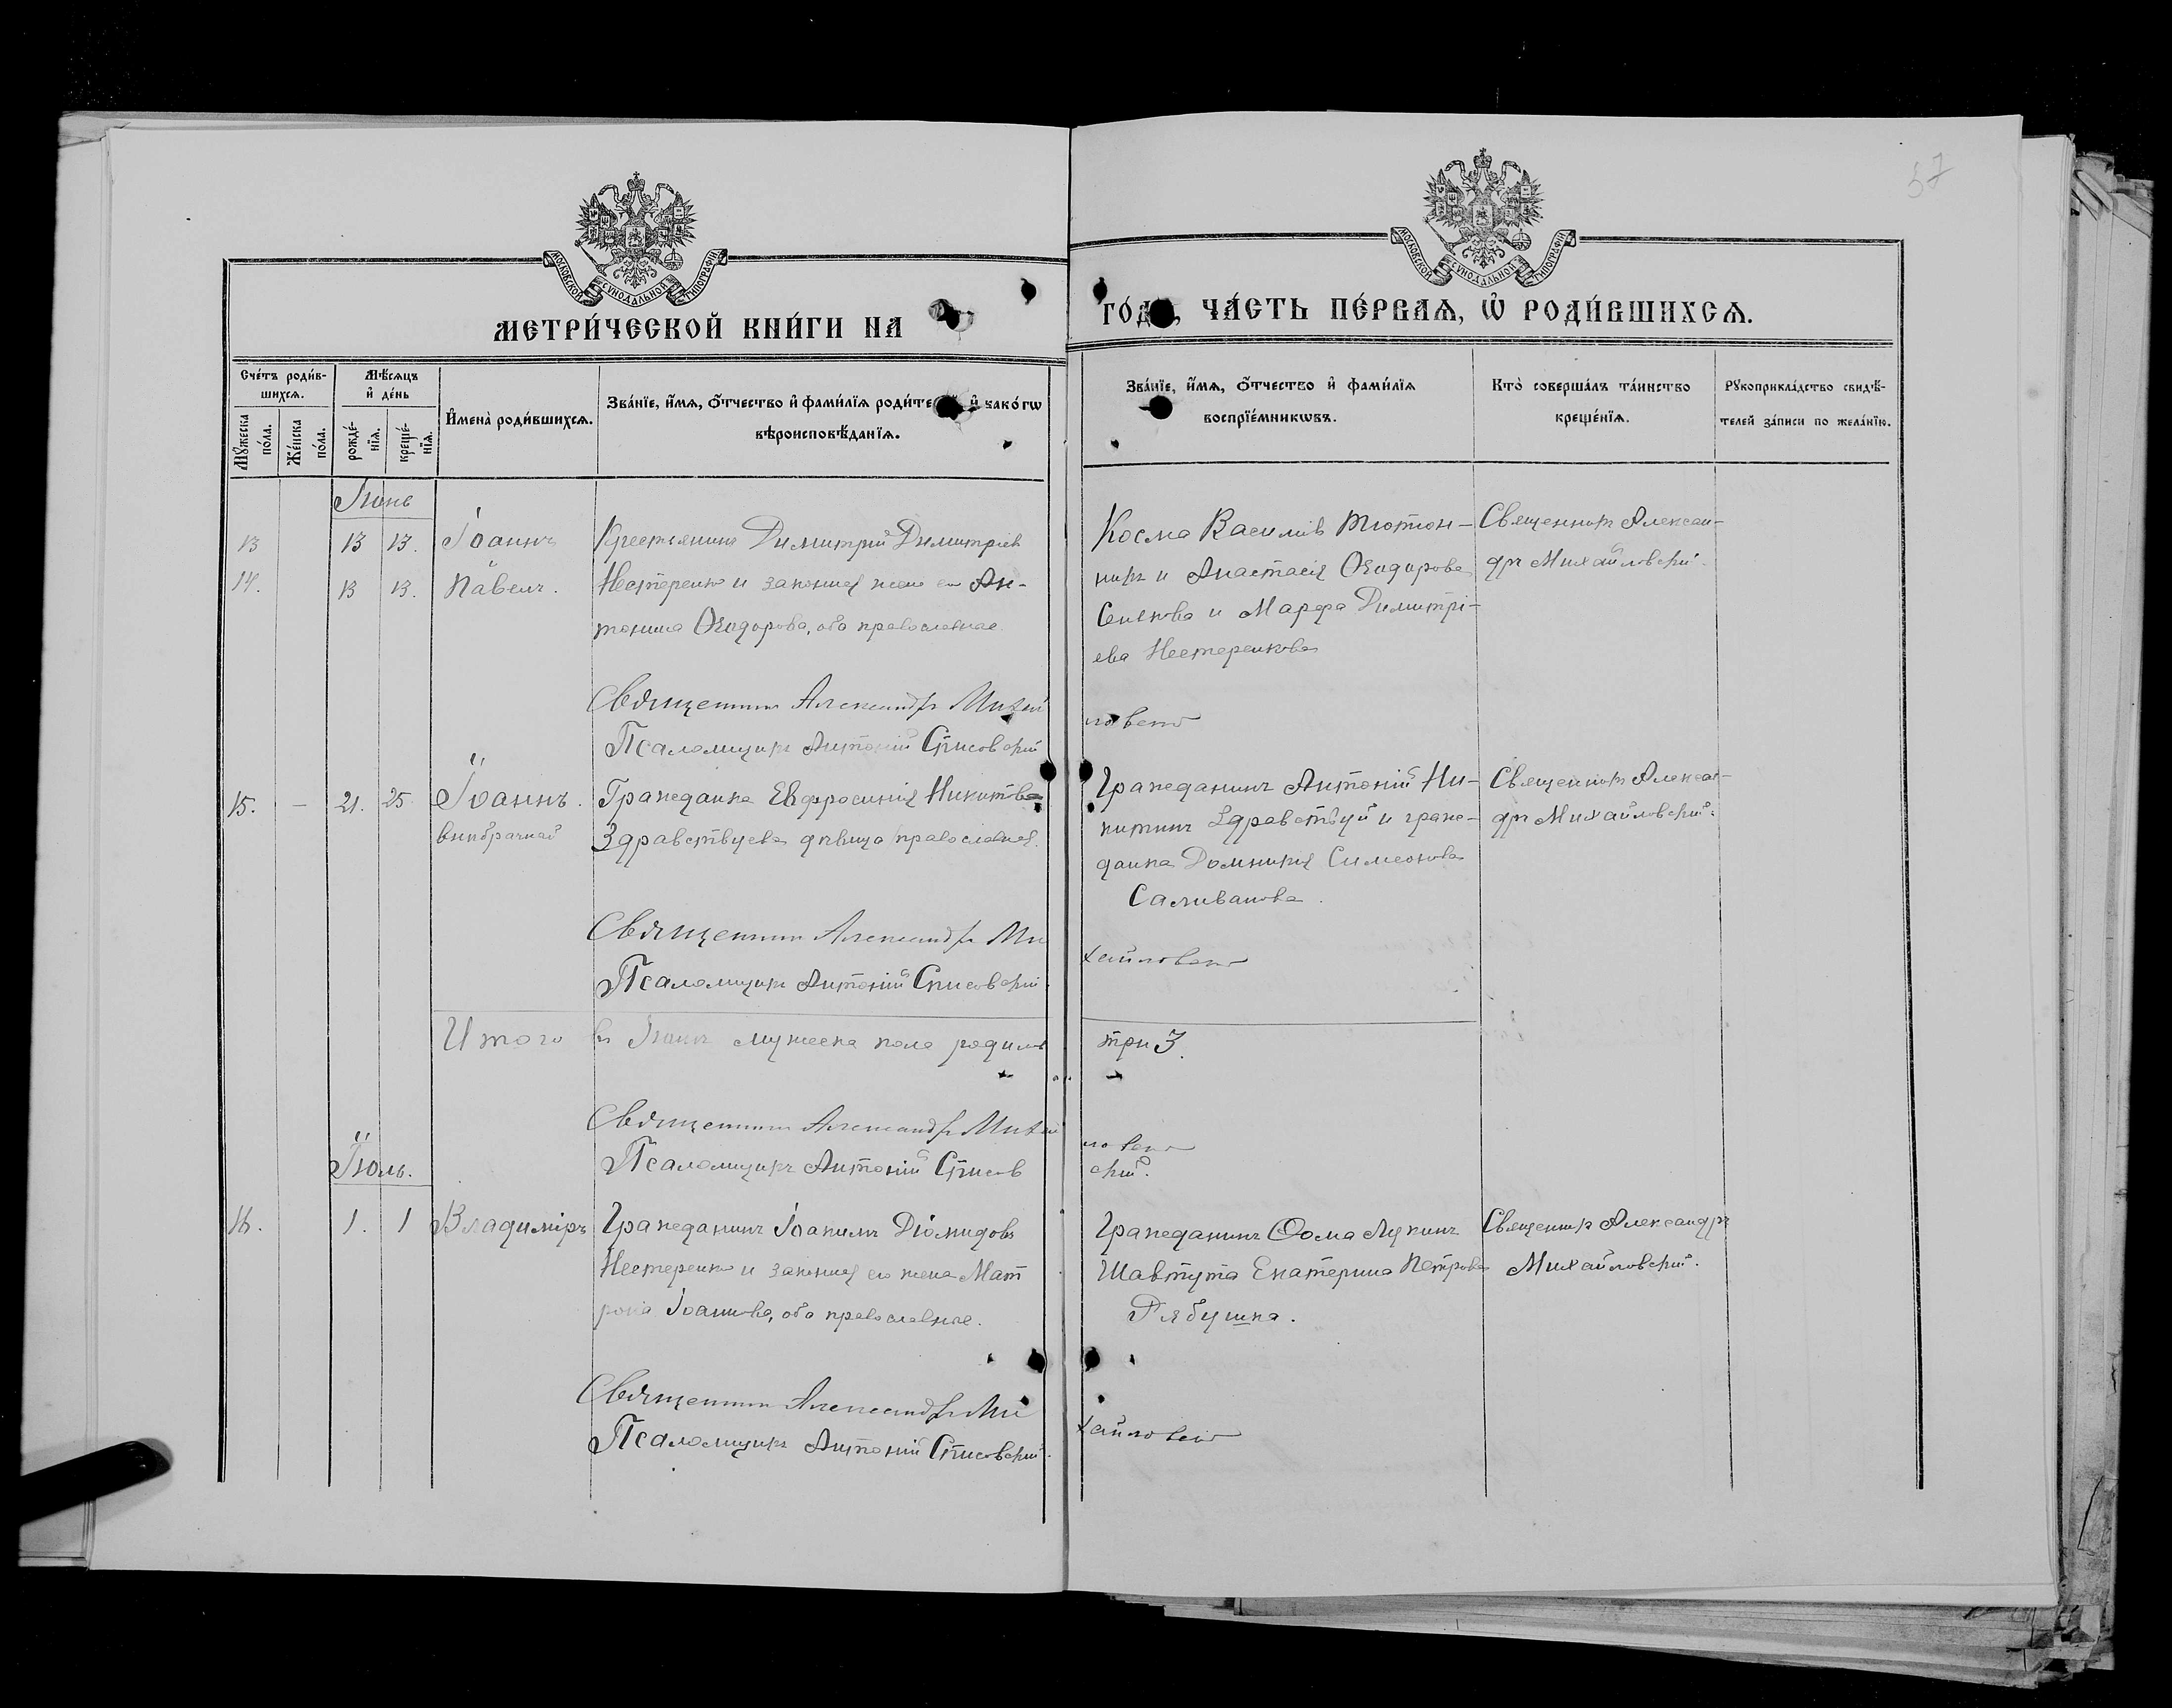 57
МОСКОВСКОЙ СУНОДАЛЬНОЙ ТИПОГРАФІИ
МОСКОВСКОЙ СУНОДАЛЬНОЙ ТИПОГРАФІИ
МЕТРИ́ЧЕСКОЙ КНИ́ГИ НА
ГО́Д, ЧА́СТЬ ПЕ́РВАѦ, Ѡ РОДИ́ВШИХСѦ.
Сче́тъ роди́в-
шихсѧ.
Мꙋ́жеска
по́ла.
Же́нска
по́ла.
Мѣ́сѧцъ
и҆ де́нь
рожде́-
нїѧ.
креще́-
нїѧ.
И҆мена̀ роди́вшихсѧ.
Зва́нїе, и҆́мѧ, ѻ҆́тчество и҆ фами́лїѧ роди́те и҆ како́гѡ
вѣроисповѣ́данїѧ.
Зва́нїе, и҆́мѧ, ѻ҆́тчество и҆ фами́лїѧ
воспрїе́мникѡвъ.
Кто̀ соверша́лъ та́инство
креще́нїѧ.
Рꙋкоприкла́дство свидѣ́-
телей за́писи по жела́нїю.
Іюнь
13 13 13. Іоаннъ Крестьянинъ Димитрій Димитріев
14. 13 13. Павелъ. Нестеренко и законная жена его Ан-
тонина Ѳеодорова, оба православные.
Косма Василіев Тютюн-
никъ и Анастасія Ѳеодорова
и Марфа Димитрі-
ева Нестеренкова
Священникъ Алексан-
дръ Михайловскій.
Священникъ Александръ Михай
ловскій
Псаломщикъ Антоній Списовскій
15. – 21. 25. Іоаннъ. Гражданка Евфросинія Никитова
внѣбрачный Здравствуева дѣвица православная.
Гражданинъ Антоній Ни-
китинъ Здравствуй и граж-
данка Домникія Симеонова
Саливанова.
Священникъ Алексан-
дръ Михайловскій.
Священникъ Александръ Ми
хайловскій
Псаломщикъ Антоній Списовскій.
Итого въ Іюнѣ мужеска пола родилось три 3.
Священникъ Александръ Михай
ловскій
Псаломщикъ Антоній Списов
скій.
Іюль.
16. 1. 1 Владиміръ Гражданинъ Іоакимъ Діомидовъ
Нестеренко и законная его жена Мат
рона Іоаннова, оба православные.
Гражданинъ Ѳома Лукинъ
Шавтута Екатерина Петрова
Рябушка.
Священникъ Александръ
Михайловскій.
Священникъ Александръ Ми
хайловскій
Псаломщикъ Антоній Списовскій.